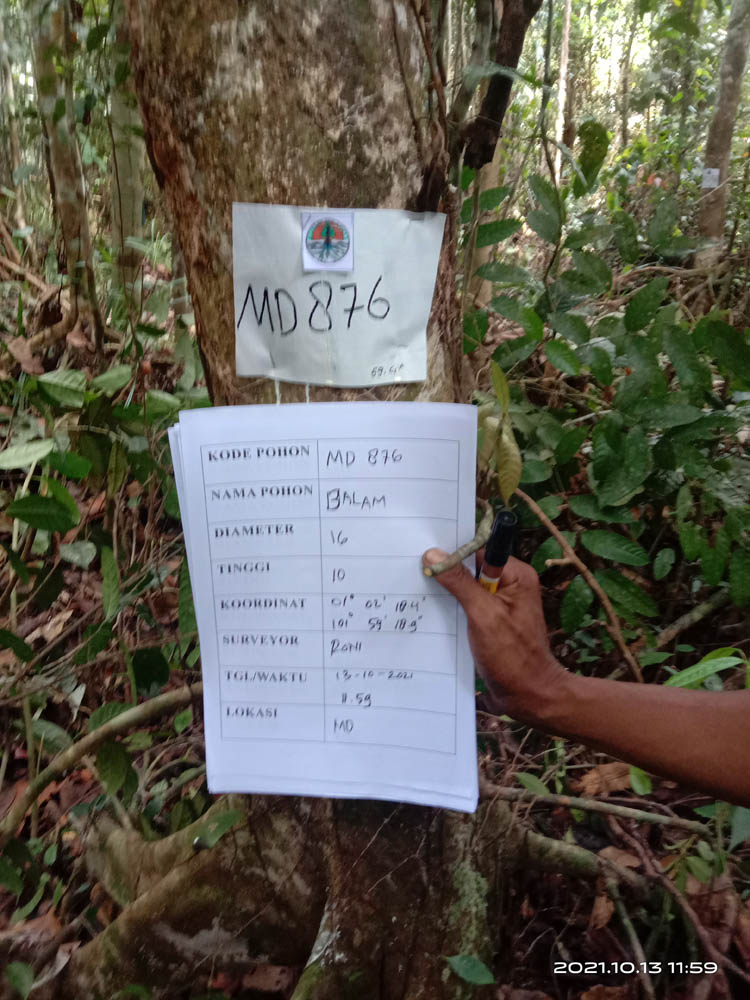 MD 876
KODE POHON MD 876
NAMA POHON BALAM
DIAMETER 16
TINGGI 10
KOORDINAT 01° 02' 18.4"
101° 59' 18.9"
SURVEYOR RONI
TGL/WAKTU 13-10-2021
11.59
LOKASI MD
2021.10.13 11:59